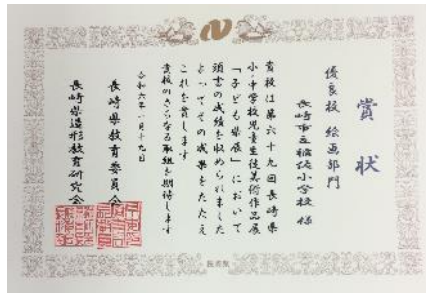 賞状
優良校 絵画部門
長崎市立稲佐小学校 様
貴校は第六十九回長崎県
小・中学校児童生徒美術作品展
「子ども県展」において
頭書の成績を収められました
よってその成果をたたえ
これを賞します
貴校のさらなる取組を期待します
令和六年一月十九日
長崎県教育委員会
長崎県造形教育研究会